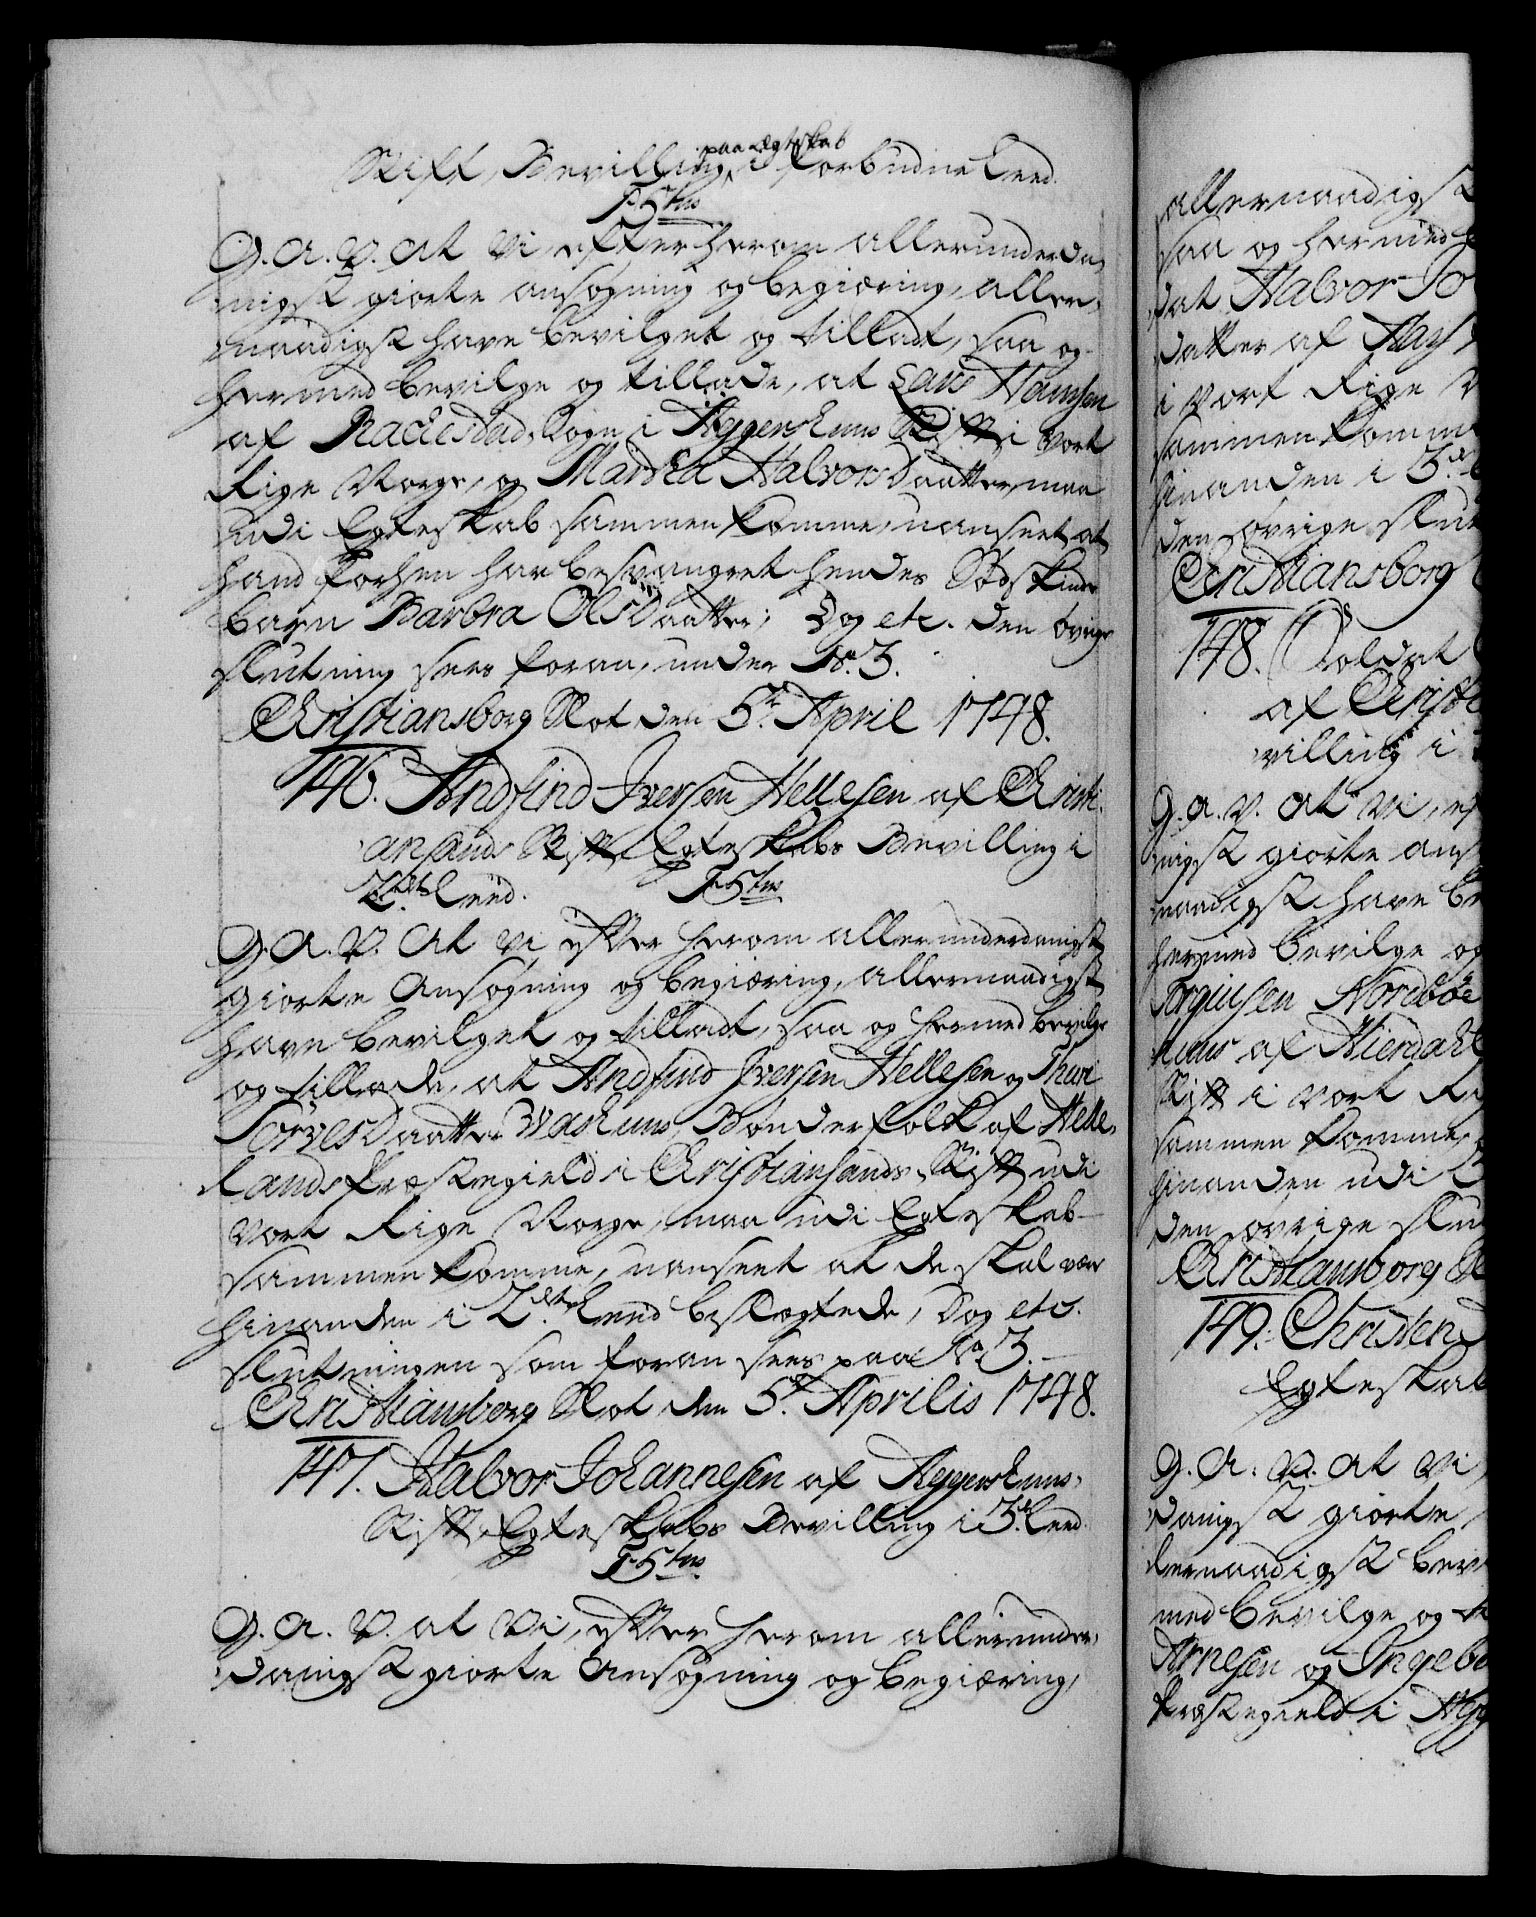 Stift, Bevilling paa Egteskab i forbudne Leed.
G. A. V. at Vi, efter herom allerunderda-
nigst giorte ansøgning og begiæring, aller-
naadigst have bevilget og tilladt, saa og
hermed bevilge og tillade, at Lars Hansen
af Rackestad Sogn i Aggershuus Stift i vort
Rige Norge, og Martha Halvors Daatter, maa
udi Egteskab sammen komme, uanseet at
hand forhen har besvangret hendes Sødskinde
barn Barbra Ols Daatter; Dog etc. den øvrige
slutning sees foran, under No. 3.
Christiansborg Slot den 5te April 1748.
146. Andfind Iversen Hellesen af Christi-
ansands Stift, Egteskabs Bevilling i
2det Leed.
G. A. V. at Vi efter herom allerunderdanigst
giorte Ansøgning og begiæring, allernaadigst
have bevilget og tilladt, saa og hermed bevilge
og tillade, at Andfind Iversen Hellesen og Thuri
Torves Daatter Washuus, Bønderfolk af Helle-
lands Præstegield i Christiansands Stift udi
vort Rige Norge, maa udi Egteskab
sammen komme, uanseet at de skal være
hinanden i 2det Leed beslægtede, Dog etc.
slutningen som foran sees paa No. 3.
Christiansborg Slot den 5te Aprilis 1748.
147. Halvor Johannesen af Aggershuus-
Stift, Egteskabs Bevilling i 3die Leed.
G. A. V. at Vi, efter herom allerunder-
danigst giorte Ansøgning og begiæring,
allernaadigst
saa og hermed
dat Halvor Jo
datter af
i vort Rige
sammen komme
hinanden i 3die
den øvrige slut
Christiansborg
148. Soldat
af Christi
villing i
G. A. V. at Vi, ef
nigst giorte ans
naadigst have be
hermed bevilge og
Torgiusen Nordbøe
huus af Hierdahl
Stift i vort Ri
sammen komme,
hinanden udi
den øvrige slut
Christiansborg Sl
149. Christen
Egteskab
G. A. V. at Vi
danigst giorte
lernaadigst bev
med bevilge og t
Arnesen og Ingebo
Præstegield i Agg